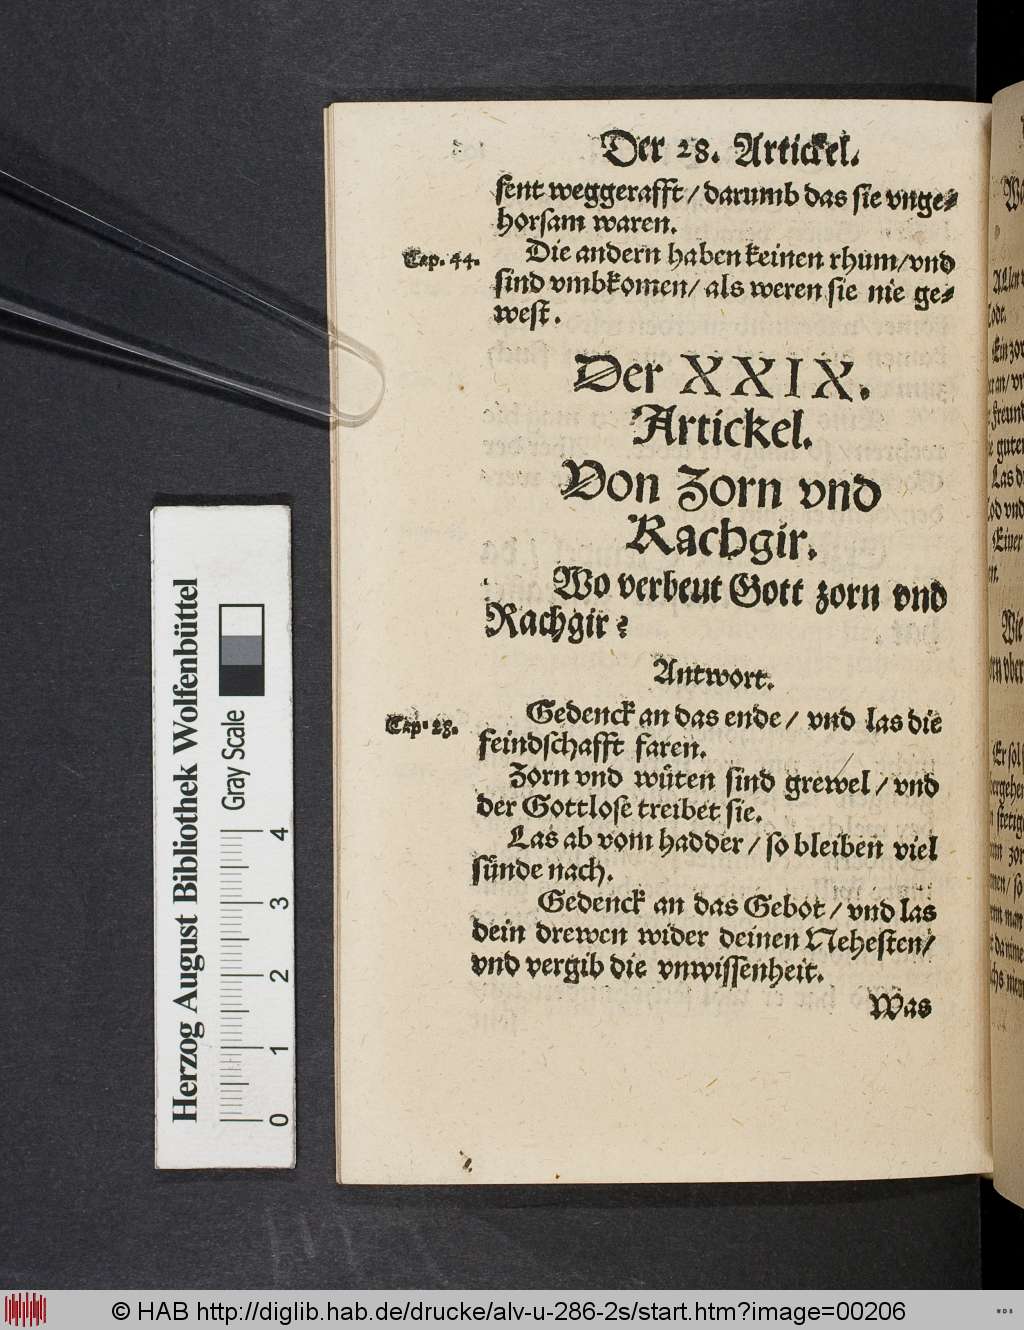 Der 28. Artickel.
sent weggerafft / darumb das sie vnge⸗
horsam waren.
Cap. 44.
Die andern haben keinen rhum / vnd
sind vmbkomen / als weren sie nie ge⸗
west.
Der XXIX.
Artickel.
Von Zorn vnd
Rachgir.
Wo verbeut Gott zorn vnd
Rachgir?
Antwort.
Cap. 28.
Gedenck an das ende / vnd las die
feindschafft faren.
Zorn vnd wüten sind grewel / vnd
der Gottlose treibet sie.
Las ab vom hadder / so bleiben viel
sünde nach.
Gedenck an das Gebot / vnd las
dein drewen wider deinen Nehesten /
vnd vergib die vnwissenheit.
Was
Allen
Tode.
Ein zor
an / vn
freund
guten
Las d
Tod vnd
Einer
Wie
vber
Er sol
stetig
zor
so
man
Herzog August Bibliothek Wolfenbüttel
Gray Scale
0 1 2 3 4
© HAB http://diglib.hab.de/drucke/alv-u-286-2s/start.htm?image=00206
WDB